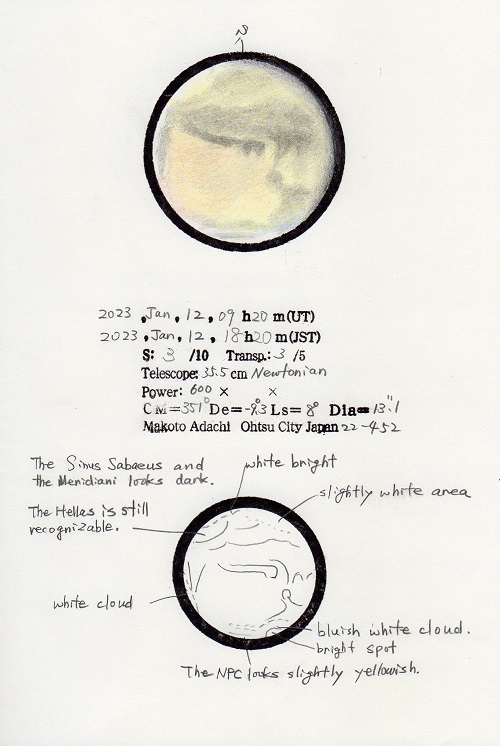 S
2023, Jan, 12, 09 h20 m(UT)
2023, Jan, 12, 18h20 m(JST)
S: 3 /10 Transp.: 3 /5
Telescope: 35.5 cm Newtonian
Power: 600 × ×
CM=351° De=-9.3 Ls=8° Dia=13".1
Makoto Adachi Ohtsu City Japan 22-452
The Sinus Sabaeus and
the Meridiani looks dark.
white bright
slightly white area
The Hellas is still
recognizable.
white cloud
bluish white cloud.
bright spot
The NPC looks slightly yellowish.